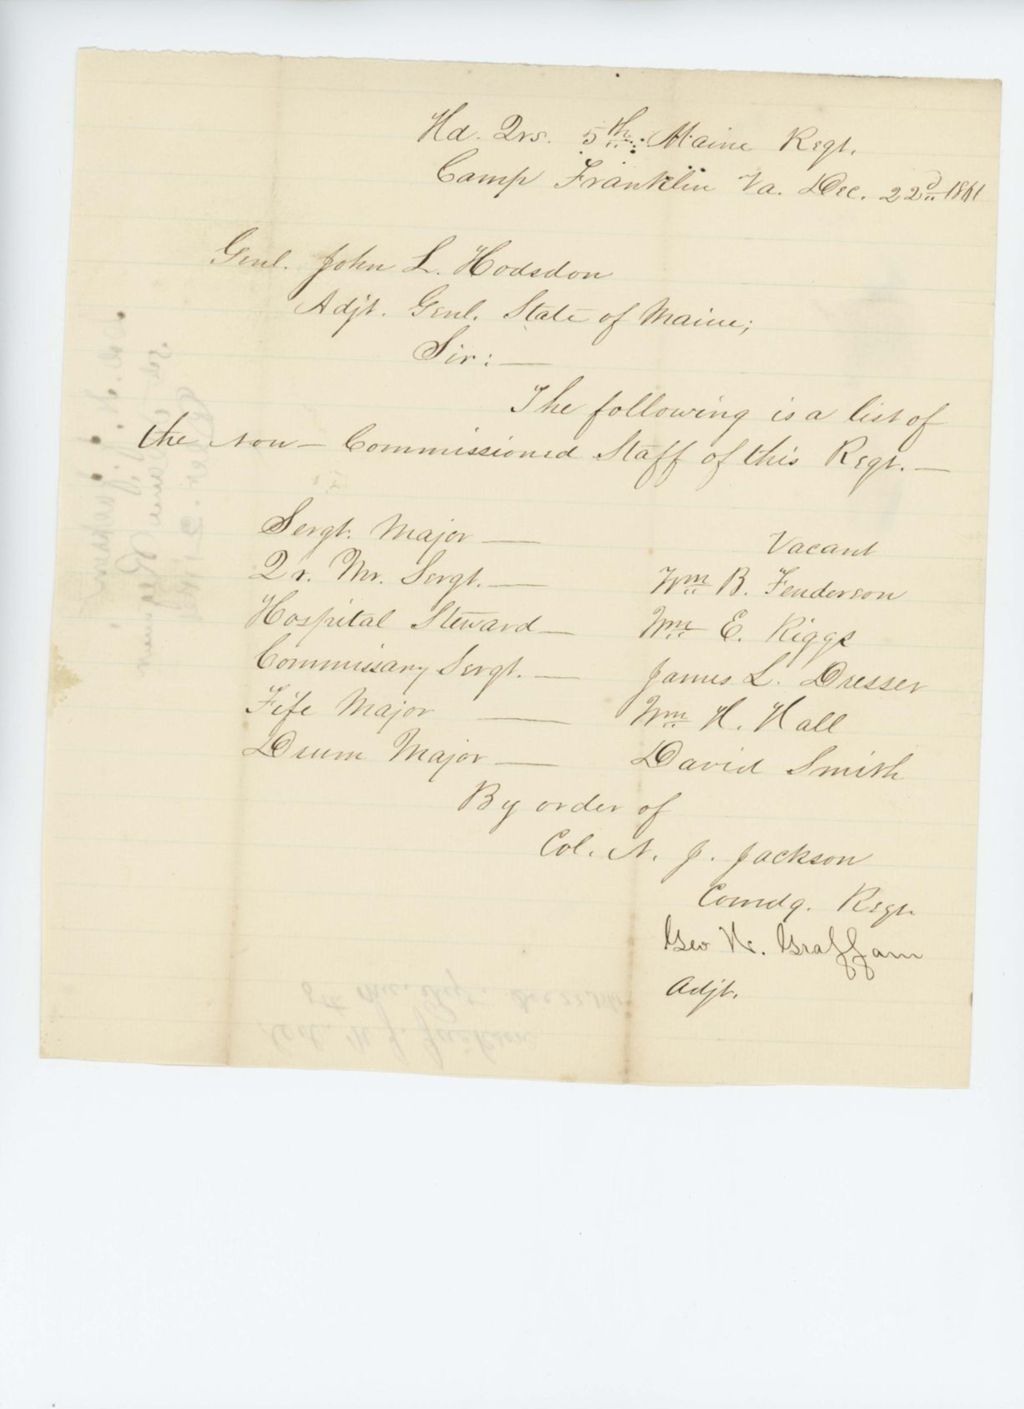 Hd. Qrs. 5th Maine Regt.
Camp Franklin Va. Dec. 22d 1861
Genl. John L. Hodsdon
Adjt. Genl. State of Maine;
Sir:—
The following is a list of
the Non-Commissioned Staff of this Regt.—
Sergt. Major — Vacant
Qr. Mr. Sergt. — Wm B. Fenderson
Hospital Steward — Wm E. Riggs
Commissary Sergt. — James L. Dresser
Fife Major — Wm H. Hall
Drum Major — David Smith
By order of
Col. N. J. Jackson
Comdg. Regt.
Geo W. Graffam
Adjt.